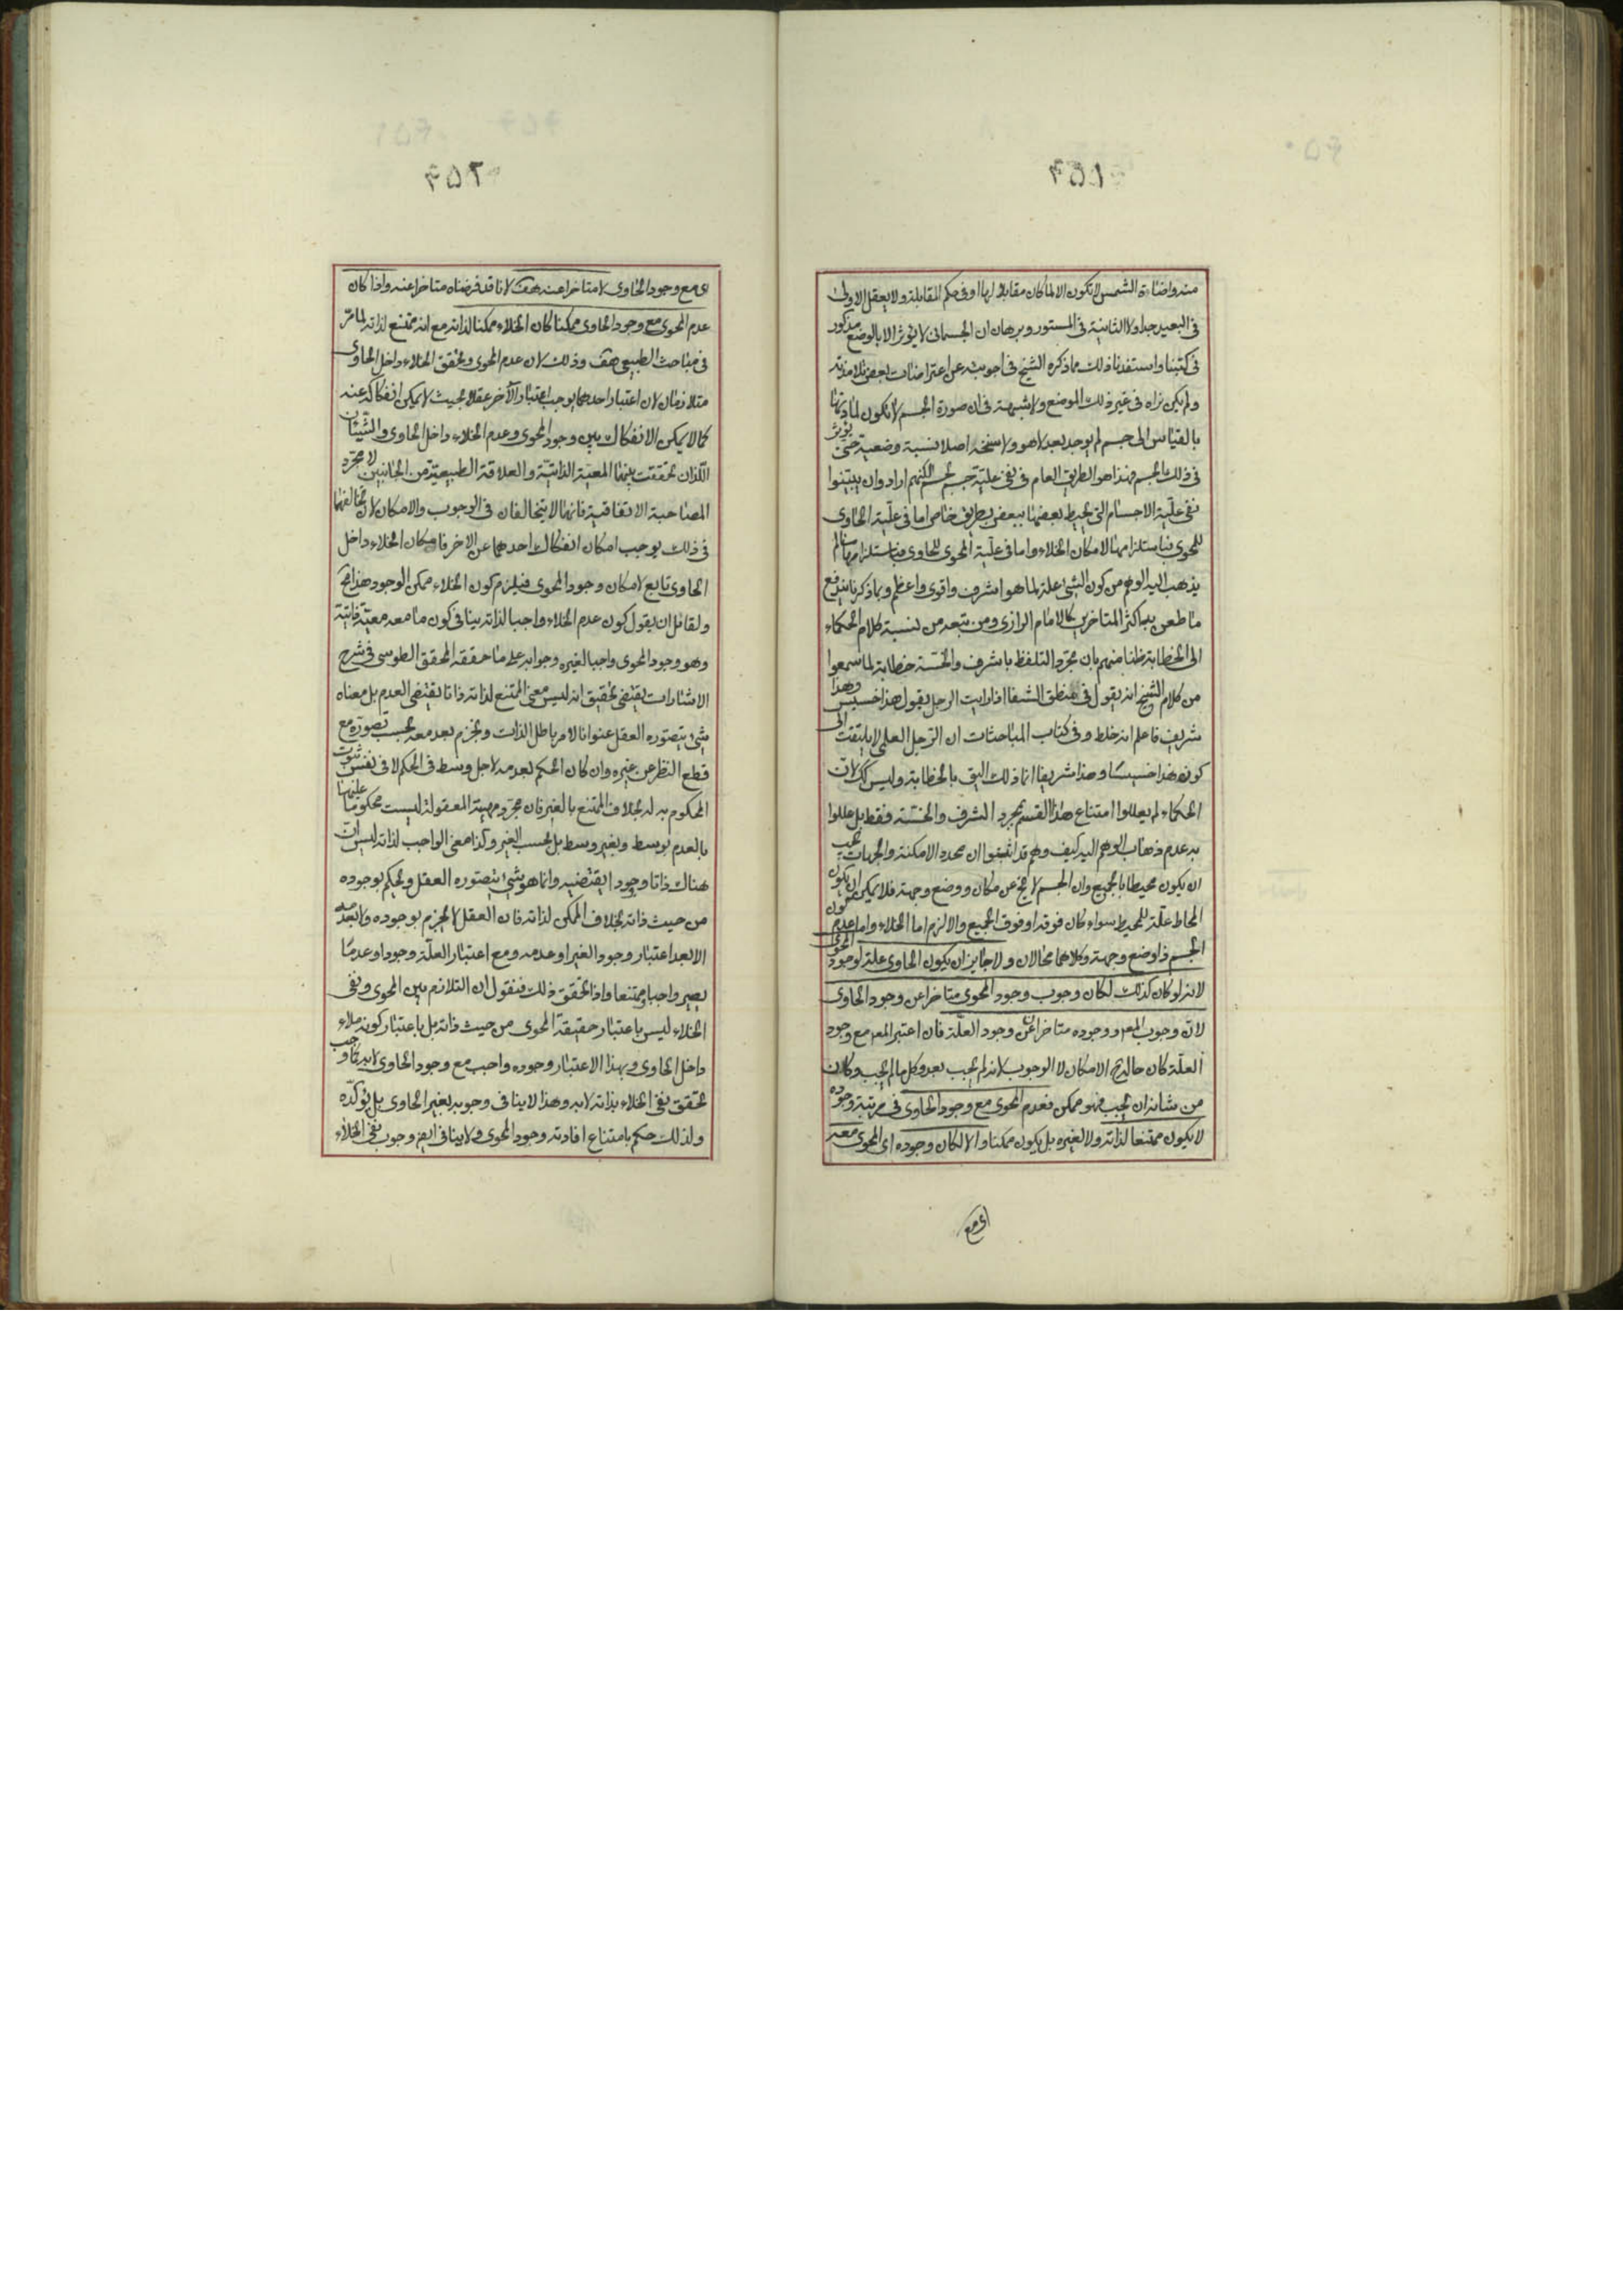 ٤٥١
منه واضاءة الشمس لا تكون الا لما كان مقابلا لها او فى حكم المقابلة ولا يعقل الاولى
فى البعيد جدا ولا الثانية فى المستور وبرهان ان الجسمانى لا يؤثر الا بالوضع مذكور
فى كتبنا واستفدنا ذلك مما ذكره الشيخ فى اجوبته عن اعتراضات بعض تلامذته
ولم يكن نراه فى غير ذلك الموضع ولا شبهة فى ان صورة الجسم لا تكون لمادتها
بالقياس الى جسم لم يوجد بعد لا هو ولا سنخه اصلا نسبة وضعية حتى يؤثر
فى ذلك الجسم فهذا هو الطريق العام فى نفى علية جسم لجسم لكنهم ارادوان يبينوا
نفى علية الاجسام التى يحيط بعضها ببعض بطريق خاص اما فى علية الحاوى
للمحوى فباستلزامها لامكان الخلاء واما فى علية المحوى للحاوى فباستلزامها مالم
يذهب اليه الوهم من كون الشئ علة لما هو اشرف واقوى واعظم وبما ذكرنا يندفع
ما طعن به اكثر المتاخرين كالامام الرازى ومن تبعه من نسبة كلام الحكماء
الى الخطابة ظنا منهم بان مجرد التلفظ بالشرف والخسة خطابة لما سمعوا
من كلام الشيخ انه يقول فى منطق الشفا اذا رايت الرجل يقول هذا خسيس وهذا
شريف فاعلم انه خلط وفى كتاب المباحثات ان الرجل العلمى لا يلتفت الى
كون هذا خسيسا وهذا شريفا انما ذلك اليق بالخطابة وليس كك لان
الحكماء لم يعللوا امتناع هذا القسم بمجرد الشرف والخسة فقط بل عللوا
به عدم ذهاب الوهم اليه كيف وهم قد اثبتوا ان محدد الامكنة والجهات يجب
ان يكون محيطا بالجميع وان الجسم لا يخ عن مكان ووضع وجهة فلا يمكن ان يكون
المحاط علة للمحيط سواء كان فوقه او فوق الجميع والا لزم اما الخلاء واما عدم كون
الجسم ذا وضع وجهة وكلاهما محالان ولا جايز ان يكون الحاوى علة لوجود المحوى
لانه لو كان كذلك لكان وجوب وجود المحوى متاخرا عن وجود الحاوى
لان وجوب المعلول ووجوده متاخران عن وجود العلة فان اعتبر المعلول مع وجود
العلة كان حاله ح الامكان لا الوجوب لانه لم يجب بعد وكل ما لم يجب وكان
من شانه ان يجب فهو ممكن فعدم المحوى مع وجود الحاوى فى مرتبة وجوده
لا يكون ممتنعا لذاته ولا لغيره بل يكون ممكنا والا لكان وجوده اى المحوى معه
اى مع
٤٥٢
اى مع وجود الحاوى لا متاخرا عنه هف لانا قد فرضناه متاخرا عنه واذا كان
عدم المحوى مع وجود الحاوى ممكنا كان الخلاء ممكنا لذاته مع انه ممتنع لذاته لما مر
فى مباحث الطبيعى هف وذلك لان عدم المحوى وتحقق الخلاء داخل الحاوى
متلازمان لان اعتبار احدهما يوجب اعتبار الآخر عقلا بحيث لا يمكن انفكاكه عنه
كما لا يمكن الانفكاك بين وجود المحوى وعدم الخلاء داخل الحاوى والشيئان
اللذان تحققت بينهما المعية الذاتية والعلاقة الطبيعية من الجانبين لا مجرد
المصاحبة الاتفاقية فانهما لا يتخالفان فى الوجوب والامكان لان تخالفهما
فى ذلك يوجب امكان انفكاك احدهما عن الاخر فامكان الخلاء داخل
الحاوى تابع لامكان وجود المحوى فيلزم كون الخلاء ممكن الوجود هذا مح
ولقائل ان يقول كون عدم الخلاء واجبا لذاته ينافى كون ما معه معية ذاتية
وهو وجود المحوى واجبا لغيره وجوابه على ما حققه المحقق الطوسى فى شرح
الاشارات يقتضى تحقيق انه ليس معنى الممتنع لذاته ذاتا يقتضى العدم بل معناه
شئ يتصوره العقل عنوانا لامر باطل الذات ويجزم بعدمه بحسب تصوره مع
قطع النظر عن غيره وان كان الحكم بعدمه لاجل وسط فى الحكم لا فى نفس ثبوت
المحكوم به له بخلاف الممتنع بالغير فان مجرد مهيته المعقولة ليست محكوما عليها
بالعدم بوسط وبغير وسط بل بحسب الغير وكذا معنى الواجب لذاته ليس ان
هناك ذاتا ووجودا يقتضيه وانما هو شئ يتصوره العقل ويحكم بوجوده
من حيث ذاته بخلاف الممكن لذاته فان العقل لا يجزم بوجوده ولا بعدمه
الا بعد اعتبار وجود الغير او عدمه ومع اعتبار العلة وجودا وعدما
يصير واجبا وممتنعا واذا تحقق ذلك فنقول ان التلازم بين المحوى ونفى
الخلاء ليس باعتبار حقيقة المحوى من حيث ذاته بل باعتبار كونه ملاء
داخل الحاوى وبهذا الاعتبار وجوده واجب مع وجود الحاوى لا به
تحقق نفى الخلاء بذاته لا به وهذا لا ينافى وجوبه بغير الحاوى بل يؤكده
ولذلك حكم بامتناع افادته وجود المحوى ولا ينافى ايضا وجوب نفى الخلاء